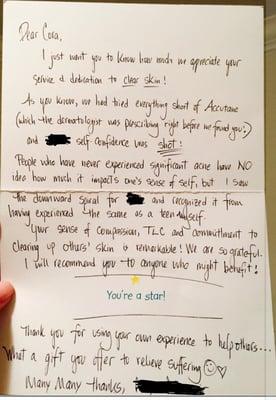 Dear Cora,
I just want you to know how much we appreciate your
service & dedication to clear skin!
As you know, we had tried everything short of Accutane
(which the dermatologist was prescribing right before we found you!)
and self-confidence was shot!
People who have never experienced significant acne have NO
idea how much it impacts one's sense of self, but I saw
the downward spiral for and recognized it from
having experienced the same as a teen myself.
Your sense of compassion, TLC and commitment to
clearing up others' skin is remarkable! We are so grateful.
I will recommend you to anyone who might benefit!
You're a star!
Thank you for using your own experience to help others...
What a gift you offer to relieve suffering
Many Many thanks,